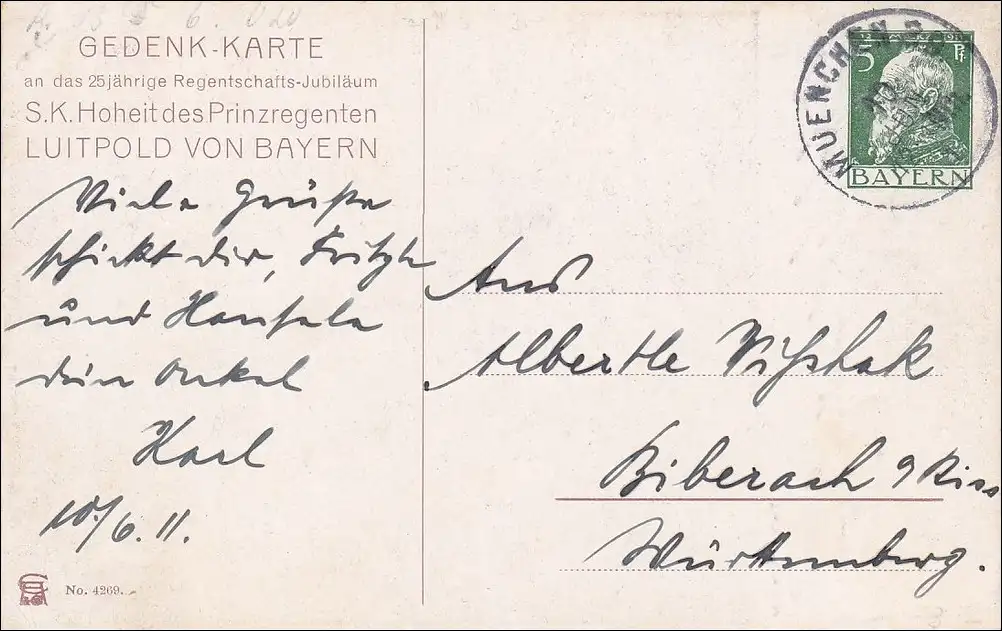 GEDENK-KARTE
an das 25jährige Regentschafts-Jubiläum
S.K. Hoheit des Prinzregenten
LUITPOLD VON BAYERN
Viele Grüße
schickt dir, Fritzle
und Hansele
dein Onkel
Karl
10/6.11.
No. 4269.
MUENCHEN
5 Pf
BAYERN
Albertle
Biberach a Riss
Württemberg.